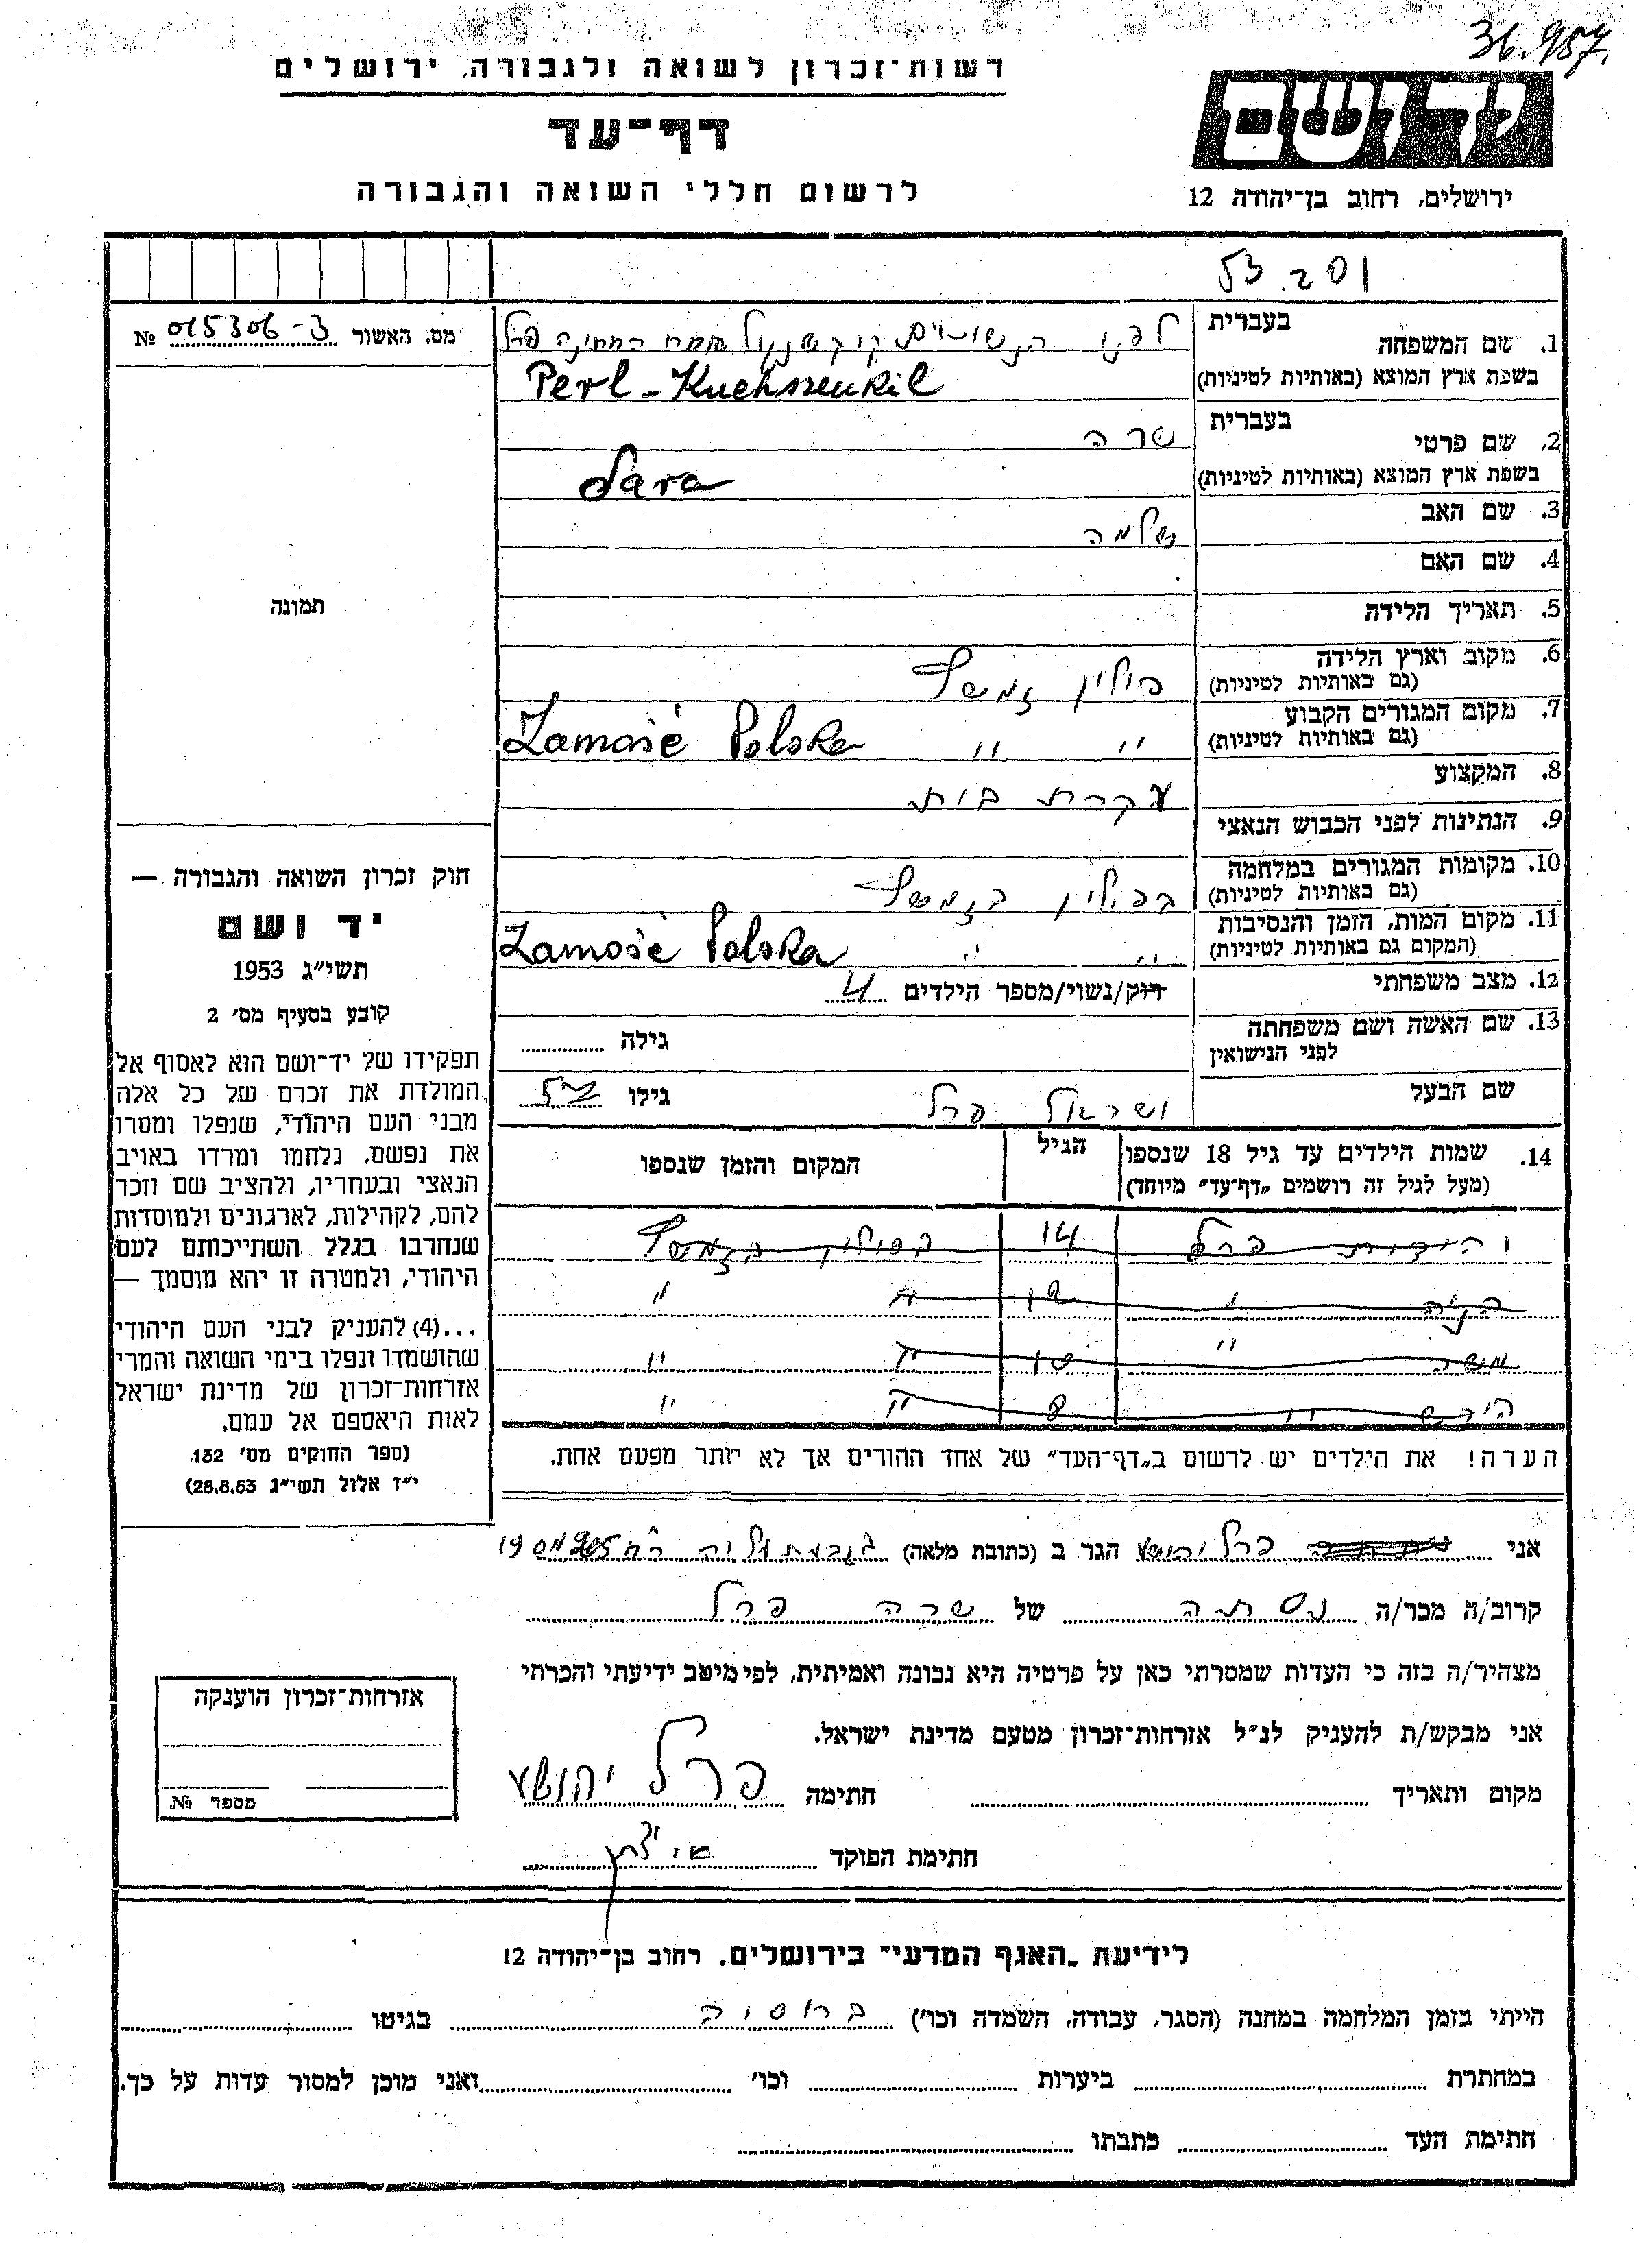 36.957.
רשות־זכרון לשואה ולגבורה, ירושלים
דף־עד
לרשום חללי השואה והגבורה
ידושם
ירושלים, רחוב בן־יהודה 12
53.201
מס. האשור 015306-3 №
1. שם המשפחה
בעברית לפני הנשואים אחרי החתונה פרל
בשפת ארץ המוצא (באותיות לטיניות) Perl - Kuchszenkil
2. שם פרטי
בעברית שרה
בשפת ארץ המוצא (באותיות לטיניות) Sara
3. שם האב שלמה
4. שם האם
תמונה
5. תאריך הלידה
6. מקום וארץ הלידה פולין זמשץ
(גם באותיות לטיניות)
7. מקום המגורים הקבוע " " Zamość Polska
(גם באותיות לטיניות)
8. המקצוע עקרת בית
9. הנתינות לפני הכבוש הנאצי
10. מקומות המגורים במלחמה בפולין בזמשץ
(גם באותיות לטיניות)
11. מקום המות, הזמן והנסיבות " " Zamość Polska
(המקום גם באותיות לטיניות)
12. מצב משפחתי רוק/נשוי/מספר הילדים 4
13. שם האשה ושם משפחתה גילה
לפני הנישואין
שם הבעל ישראל פרל גילו 52
14. שמות הילדים עד גיל 18 שנספו הגיל המקום והזמן שנספו
(מעל לגיל זה רושמים "דף־עד" מיוחד)
יהודית פרל 14 בפולין בזמשץ
" 12 " "
משה " 10 " "
הירש " 8 " "
הערה! את הילדים יש לרשום ב"דף־העד" של אחד ההורים אך לא יותר מפעם אחת.
חוק זכרון השואה והגבורה —
יד ושם
תשי"ג 1953
קובע בסעיף מס' 2
תפקידו של יד־ושם הוא לאסוף אל
המולדת את זכרם של כל אלה
מבני העם היהודי, שנפלו ומסרו
את נפשם, נלחמו ומרדו באויב
הנאצי ובעוזריו, ולהציב שם וזכר
להם, לקהילות, לארגונים ולמוסדות
שנחרבו בגלל השתייכותם לעם
היהודי, ולמטרה זו יהא מוסמך —
...(4) להעניק לבני העם היהודי
שהושמדו ונפלו בימי השואה והמרי
אזרחות־זכרון של מדינת ישראל
לאות היאספם אל עמם.
(ספר החוקים מס' 132
י"ז אלול תשי"ג 28.8.53)
אני פרל יהושע הגר ב (כתובת מלאה) 19
קרוב/ה מכר/ה של שרה פרל
מצהיר/ה בזה כי העדות שמסרתי כאן על פרטיה היא נכונה ואמיתית, לפי מיטב ידיעתי והכרתי
אני מבקש/ת להעניק לנ"ל אזרחות־זכרון מטעם מדינת ישראל.
מקום ותאריך חתימה פרל יהושע
חתימת הפוקד
אזרחות־זכרון הוענקה
מספר №
לידיעת "האגף המדעי" בירושלים, רחוב בן־יהודה 12
הייתי בזמן המלחמה במחנה (הסגר, עבודה, השמדה וכו') ברוסיה בגיטו
במחתרת ביערות וכו' ואני מוכן למסור עדות על כך.
חתימת העד כתבתו